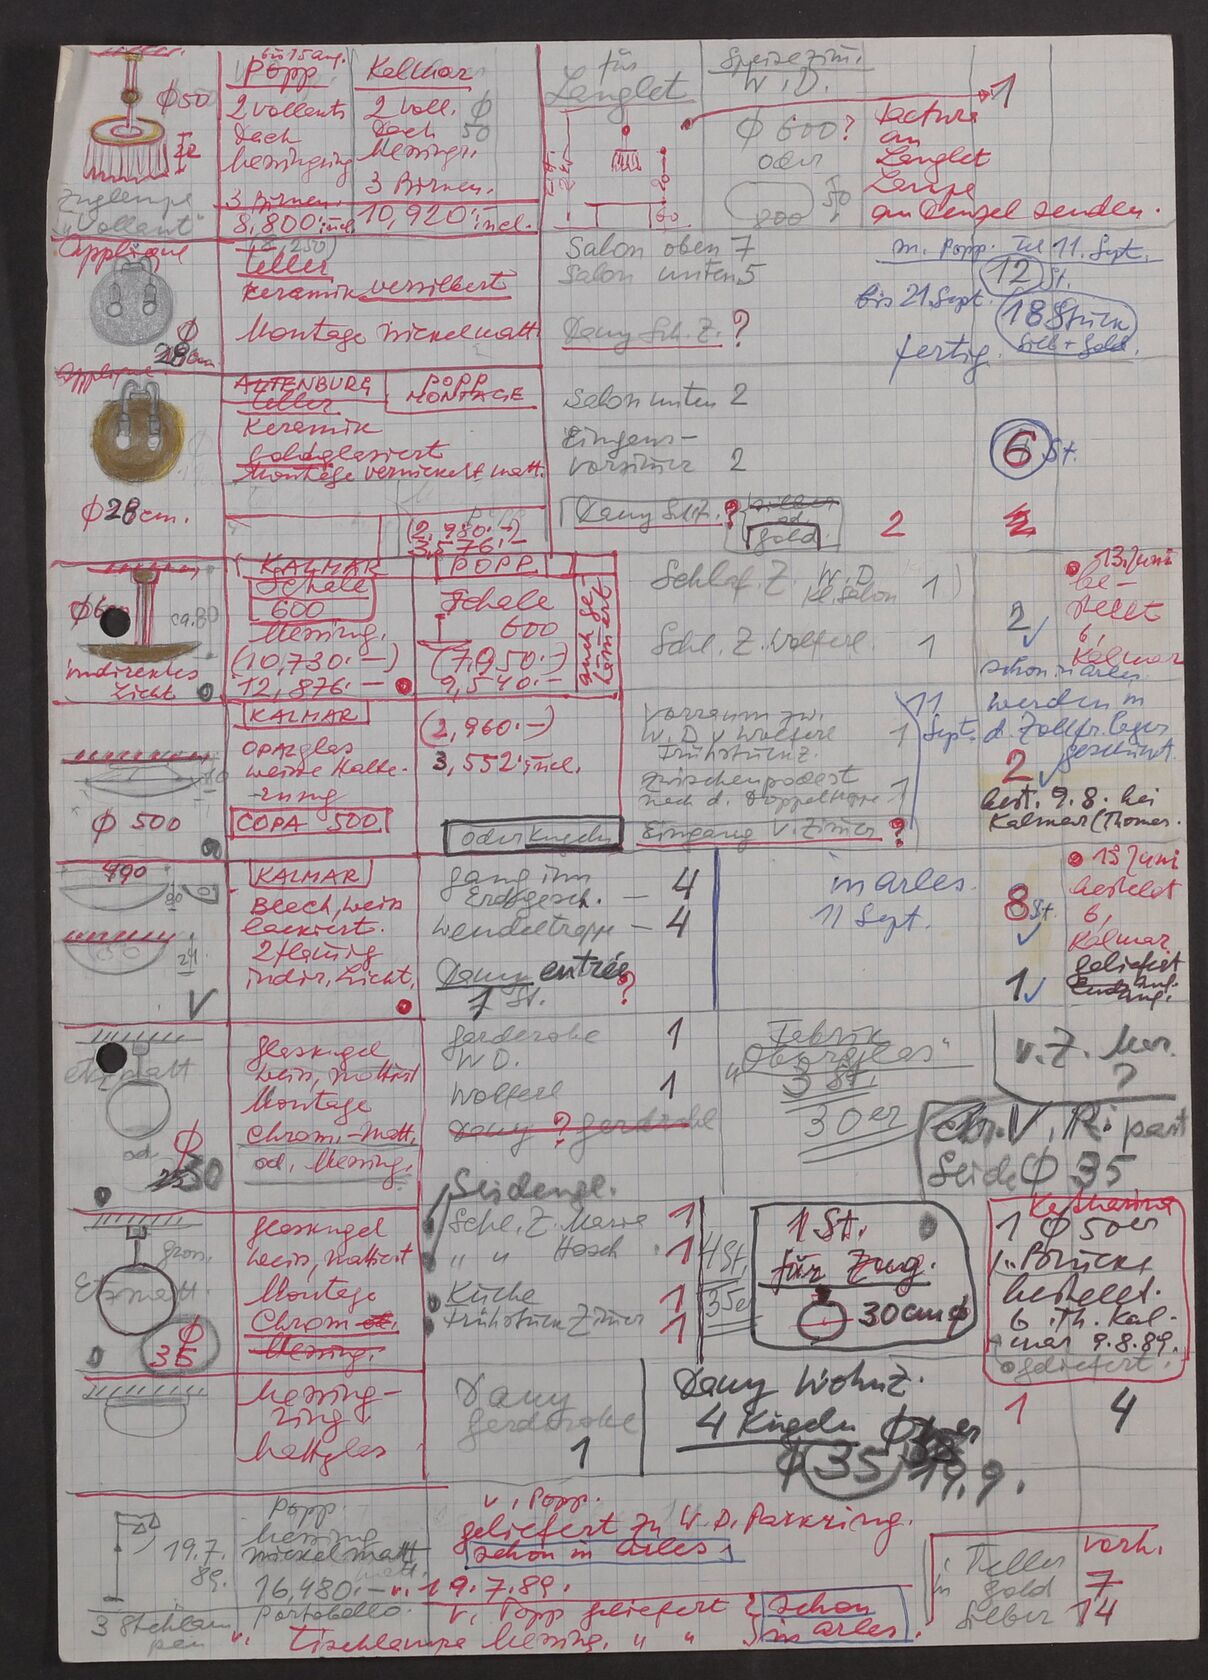 bis 15 aug.
Popp
Kalmar
Ø50
2 Vollants
Dach
Messingring
3 Birnen.
8,800.- incl.
2 Voll. Ø
Dach 50
Messingr.
3 Birnen.
10,920.- incl.
Zuglampe
"Vollant"
für
Langlet
Speisezim.
W. D.
Ø 600?
oder
800
50
60
1
factura
an
Langlet
Lampe
an Denzel senden.
Applique
Teller
Keramik versilbert
Montage nickelmatt.
Ø
28cm.
Salon oben 7
Salon unten 5
Dany Schl. Z. ?
m. Popp. Tel 11. Sept.
12 St.
bis 21. Sept.
18 Stück
Silb + Gold.
fertig.
Applique
ALTENBURG
POPP
MONTAGE
Teller
Keramik
Goldglasiert
Montage vernickelt matt.
Ø28cm.
Popp
(2,980.-)
3,576.-
Salon unten 2
Eingang-
vorzimer 2
Dany Schlf. ?
od.
Gold
2
6 St.
KALMAR
Schale
600
Messing.
(10,730.-)
12,876.-
POPP
Schale
600
(7,950.-)
9,540.-
Ø600
ca. 80
indirektes
Licht
Schlaf. Z. W. D.
kl. Salon 1
Schl. Z. Wolferl. 1
2
schon in Arles.
13. Juni
be-
stellt
b.
Kalmar
KALMAR
OPALglas
weisse Halte-
rung
COPA 500
Ø 500
(2,960.-)
3,552.- incl.
oder Knecht
Vorraum zw.
W. D. u Wolferl 1
Frühstückz.
Zwischenpodest
nach d. Doppeltreppe 1
Eingang V. Zimer ?
11
Sept.
werden in
d. Zollfr. lager
2
best. 9.8. bei
Kalmar (Thomas.
490
KALMAR
Blech, weis
lackiert.
2 flamig
indir. Licht.
gang im
Erdgesch. — 4
Wendeltreppe — 4
Dany entrée
1 St. ?
in Arles.
11 Sept.
8 St.
1
13 Juni
bestellt
b.
Kalmar
geliefert
Etzmatt
od.
Ø
30
Glaskugel
weis, mattiert
Montage
Chrom-matt.
od. Messing.
Garderobe 1
W D.
Wolferl 1
Dany ? Garderobe
Fabrik
"Oberglas"
3 St.
30er
V. Z. Mar.
?
Seide Ø 35
Seidengl.
gross.
Etzmatt
Ø
35
Glaskugel
weis, mattiert
Montage
Chrom od.
Messing.
Schl. Z. Marie 1
" " Hasch. 1
Küche 1
Frühstück Zimer 1
4 St.
35er
1 St.
für Zug.
30cm Ø
Katharina
1 Ø 50er
"Brücke
bestellt.
b. Th. Kal-
mar 9.8.89.
geliefert.
Messing-
ring
Mattglas
Dany
Garderobe
1
Dany Wohnz.
4 Kugeln
Ø 35 19.9.
1
4
19.7.
89.
3 Stehlam
pen
Popp.
Messing
nickelmatt
16,480.- v. 19.7.89.
Portobello.
v. Popp.
geliefert zu W. D. Parkring.
schon in Arles.
v. Popp geliefert
v. Tischlampe Messing. " "
schon
in Arles.
Teller vorh.
in Gold 7
Silber 14